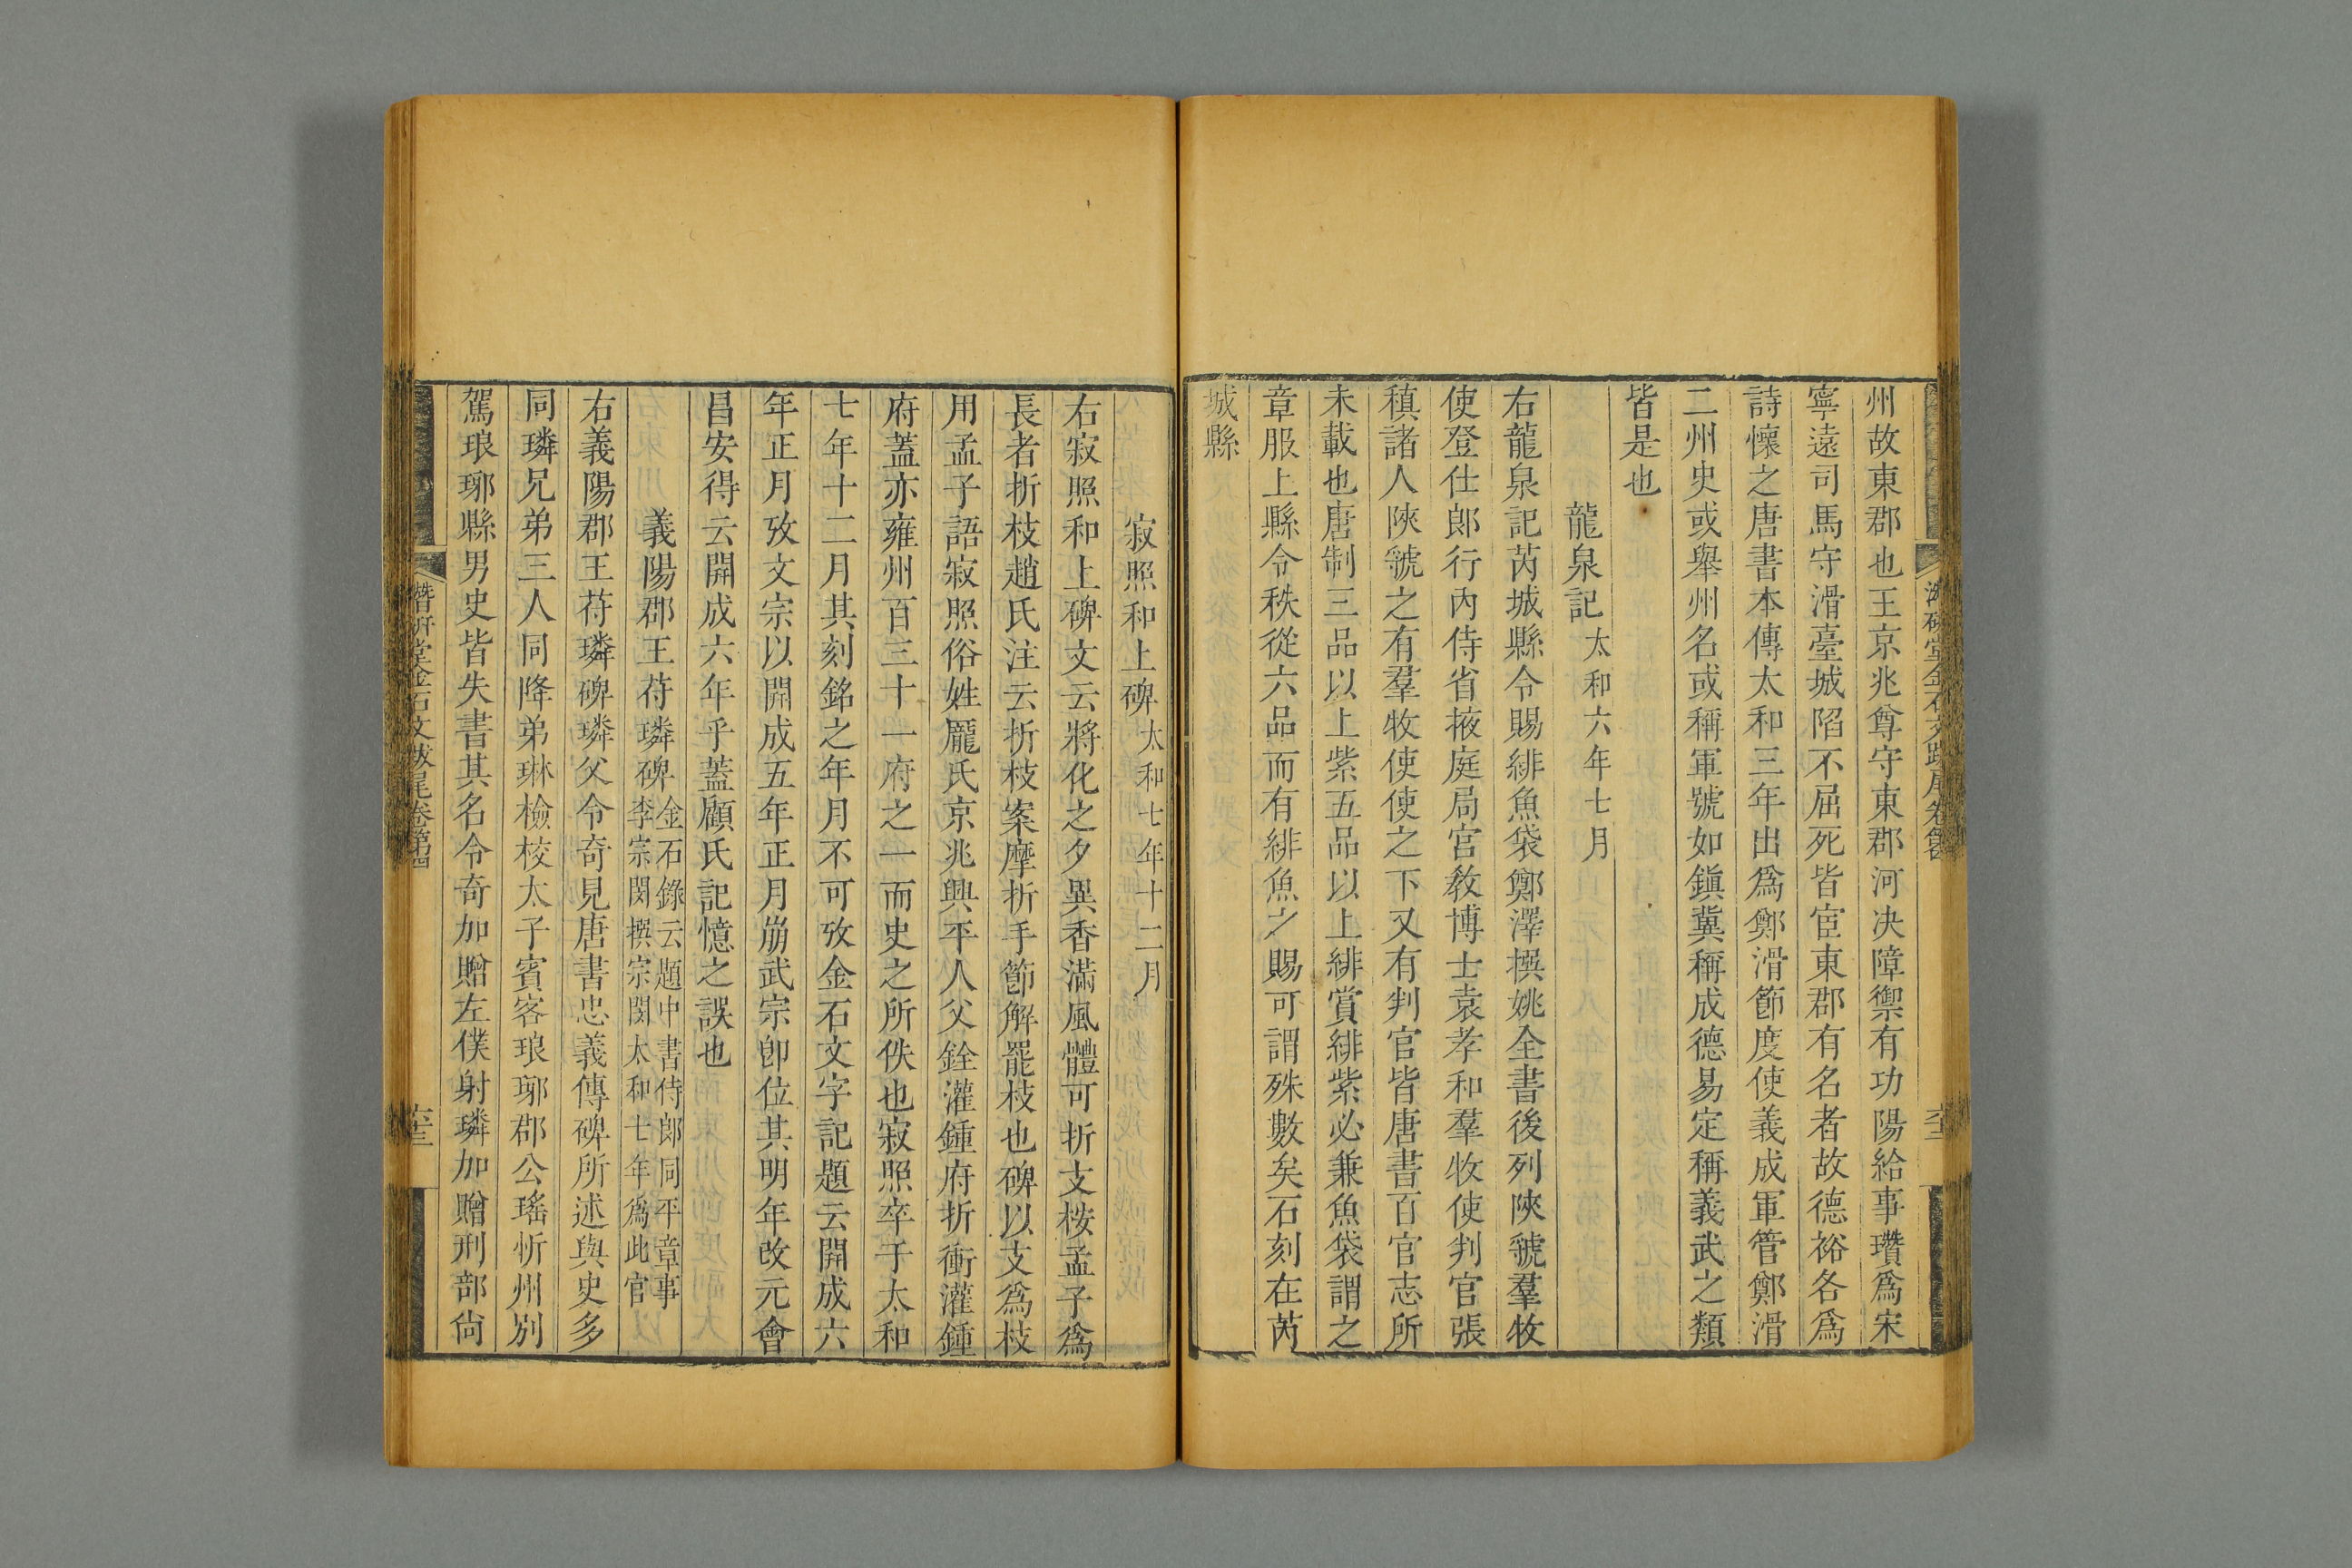 州故東郡也王京兆尊守東郡河决障禦有功陽給事瓚爲宋
寧遠司馬守滑臺城陷不屈死皆宦東郡有名者故德裕各爲
詩懷之唐書本傳太和三年出爲鄭滑節度使義成軍管鄭滑
二州史或舉州名或稱軍號如鎭冀稱成德易定稱義武之類
皆是也
龍泉記太和六年七月
右龍泉記芮城縣令賜緋魚袋鄭澤撰姚全書後列陝虢羣牧
使登仕郎行內侍省掖庭局宮教博士袁孝和羣牧使判官張
稹諸人陝虢之有羣牧使使之下又有判官皆唐書百官志所
未載也唐制三品以上紫五品以上緋賞緋紫必兼魚袋謂之
章服上縣令秩從六品而有緋魚之賜可謂殊數矣石刻在芮
城縣
寂照和上碑太和七年十二月
右寂照和上碑文云將化之夕異香滿風體可折支桉孟子爲
長者折枝趙氏注云折枝案摩折手節解罷枝也碑以支爲枝
用孟子語寂照俗姓龐氏京兆興平人父銓灌鍾府折衝灌鍾
府蓋亦雍州百三十一府之一而史之所佚也寂照卒于太和
七年十二月其刻銘之年月不可攷金石文字記題云開成六
年正月攷文宗以開成五年正月崩武宗卽位其明年改元會
昌安得云開成六年乎蓋顧氏記憶之誤也
義陽郡王苻璘碑金石錄云題中書侍郎同平章事
李宗閔撰宗閔太和七年爲此官
右義陽郡王苻璘碑璘父令奇見唐書忠義傳碑所述與史多
同璘兄弟三人同降弟琳檢校太子賓客琅琊郡公瑤忻州別
駕琅琊縣男史皆失書其名令奇加贈左僕射璘加贈刑部尙
潛研堂金石文跋尾卷第四